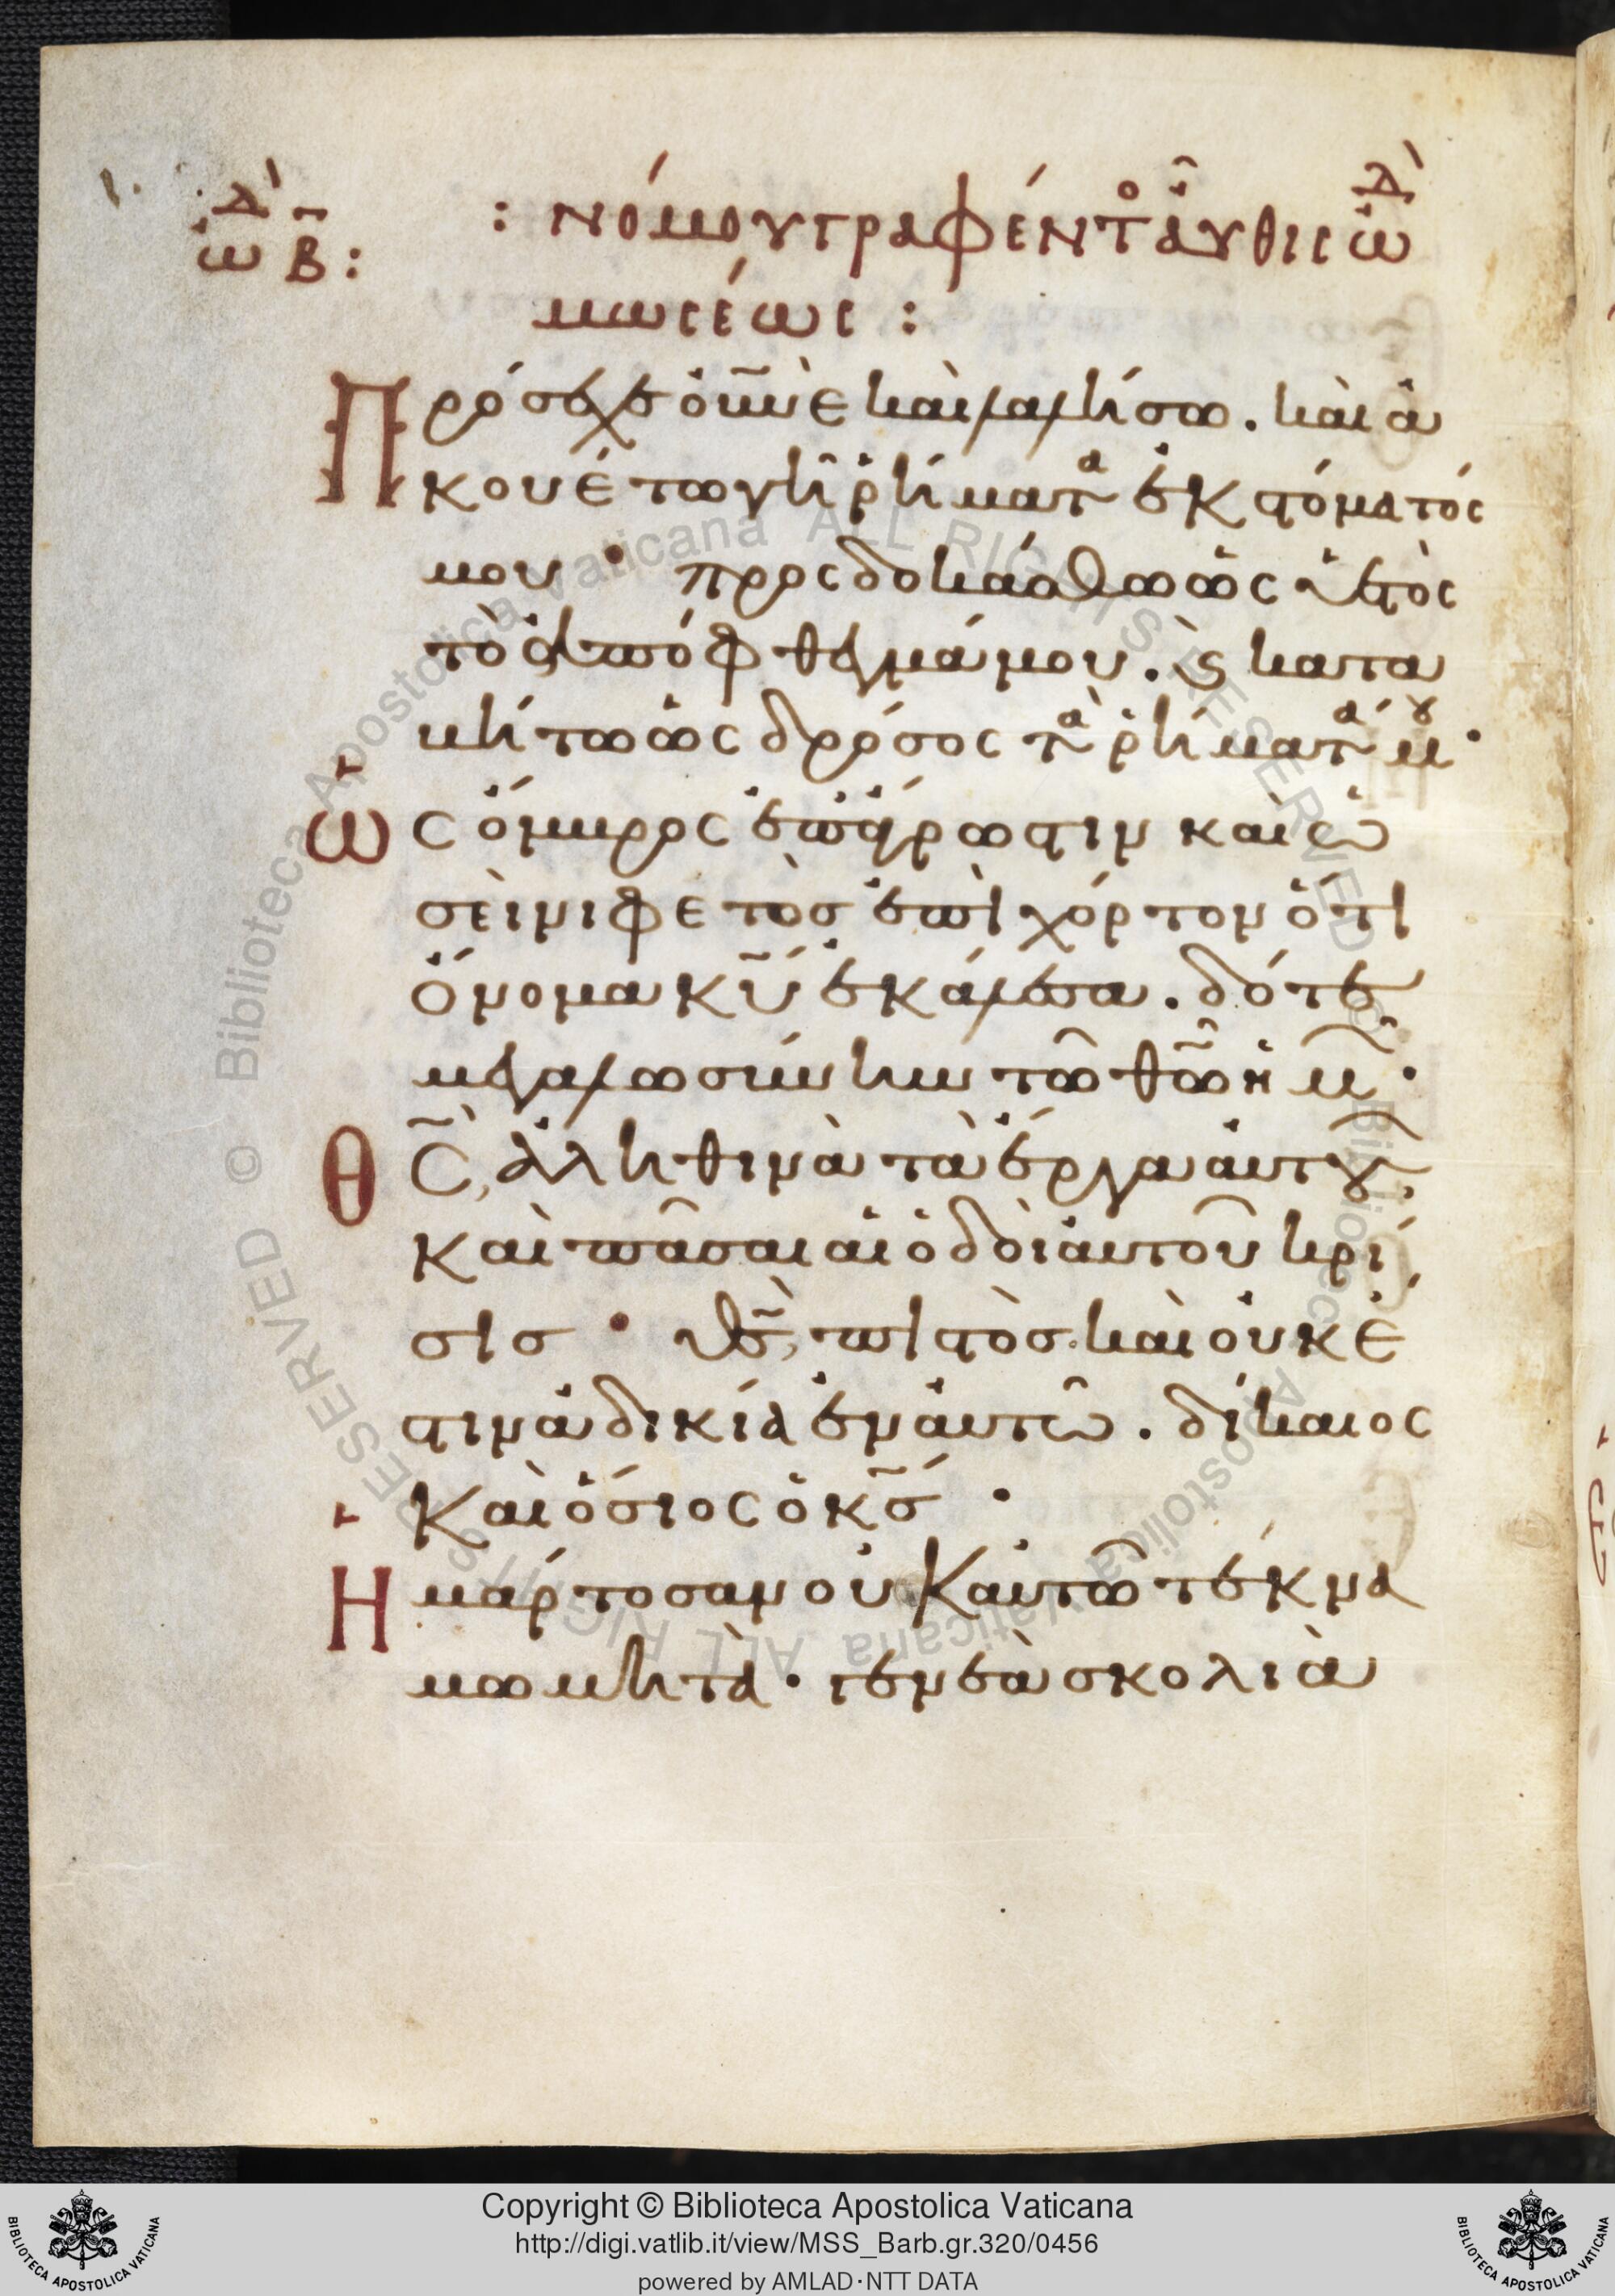 ᾠδ β :
: νόμου γραφέντο αὖθις ᾠδ
μωσέως :
Πρόσεχε οὐνε καὶ λαλήσω. καὶ ἀ
κουέτω γῆ ῥήματα ἐκ στόματός
μου · προςδοκάσθω ὡς ὑετὸς
τὸ ἀπόφθεγμά μου. ϛ κατα
βήτω ὡς δρόσος τὰ ῥήματά μου ·
Ὡς ὄμβρος ἐπ' ἄγρωστιν καὶ ὡ
σεὶ νιφετὸσ ἐπὶ χόρτον ὅτι
ὄνομα κυ ἐκάλεσα. δότε
μεγαλωσύνην τῶ θῶ ἡμ ·
Θς, ἀληθινὰ τὰ ἔργα αυτου,
καὶ πᾶσαι αἱ ὁδοὶ ἀυτοῦ κρί
σισ · θς, πιστὸσ. καὶ οὐκ ἔ
στιν ἀδικία ἐν ἀυτῶ. δίκαιος
καὶ ὅσιος ὁ κσ ·
Ημάρτοσαν οὐκ ἀυτῶ τέκνα
μωμητὰ · γενεὰ σκολιὰ
Copyright © Biblioteca Apostolica Vaticana
http://digi.vatlib.it/view/MSS_Barb.gr.320/0456
powered by AMLAD·NTT DATA
BIBLIOTECA APOSTOLICA VATICANA
BIBLIOTECA APOSTOLICA VATICANA